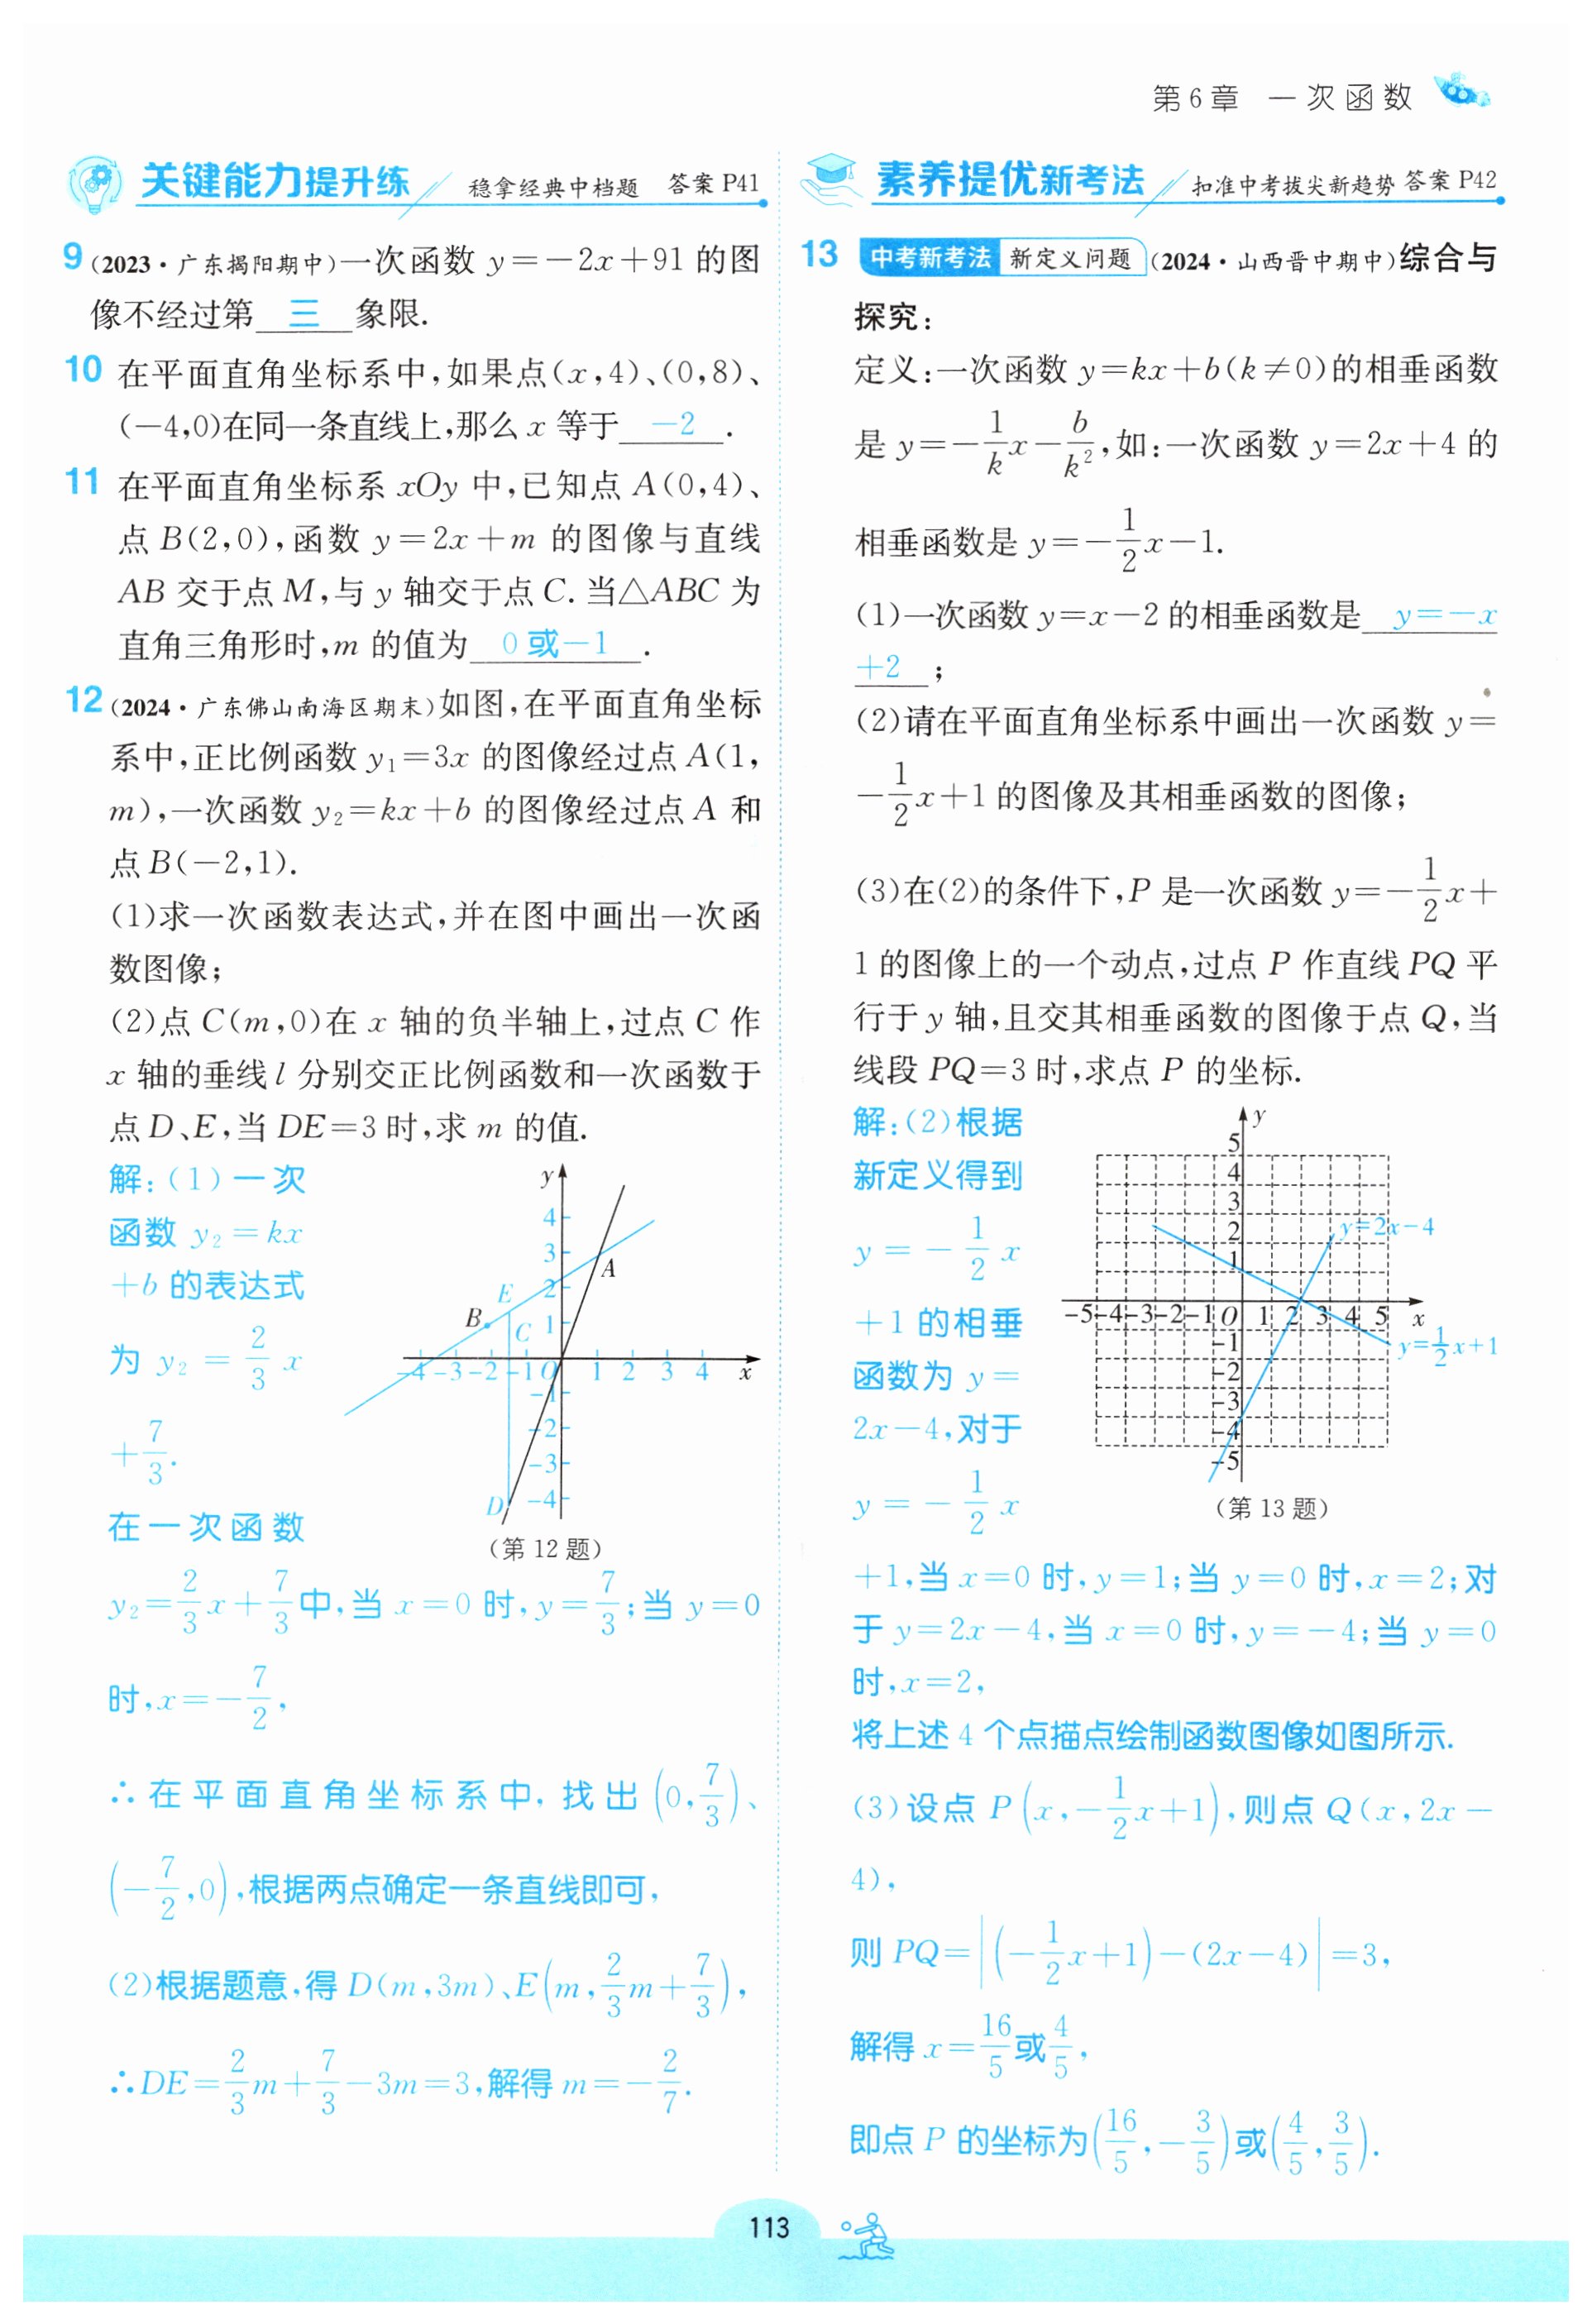 第6章 一次函数
关键能力提升练 稳拿经典中档题 答案 P41
9 (2023·广东揭阳期中)一次函数 y=-2x+91 的图
像不经过第 三 象限.
10 在平面直角坐标系中,如果点(x,4)、(0,8)、
(-4,0)在同一条直线上,那么 x 等于 -2 .
11 在平面直角坐标系 xOy 中,已知点 A(0,4)、
点 B(2,0),函数 y=2x+m 的图像与直线
AB 交于点 M,与 y 轴交于点 C. 当△ABC 为
直角三角形时,m 的值为 0或-1 .
12 (2024·广东佛山南海区期末)如图,在平面直角坐标
系中,正比例函数 y₁=3x 的图像经过点 A(1,
m),一次函数 y₂=kx+b 的图像经过点 A 和
点 B(-2,1).
(1)求一次函数表达式,并在图中画出一次函
数图像;
(2)点 C(m,0)在 x 轴的负半轴上,过点 C 作
x 轴的垂线 l 分别交正比例函数和一次函数于
点 D、E,当 DE=3 时,求 m 的值.
解:(1)一次
函数 y₂=kx
+b 的表达式
为 y₂=2/3 x
+7/3.
在一次函数
y
4
3
2
1
A
E
B
C
-4 -3 -2 -1 O 1 2 3 4 x
-1
-2
-3
D -4
(第 12 题)
y₂=2/3 x+7/3中,当 x=0 时,y=7/3;当 y=0
时,x=-7/2,
∴在平面直角坐标系中,找出(0,7/3)、
(-7/2,0),根据两点确定一条直线即可,
(2)根据题意,得 D(m,3m)、E(m,2/3 m+7/3),
∴DE=2/3 m+7/3-3m=3,解得 m=-2/7.
素养提优新考法 扣准中考拔尖新趋势 答案 P42
13 中考新考法 新定义问题 (2024·山西晋中期中)综合与
探究:
定义:一次函数 y=kx+b(k≠0)的相垂函数
是 y=-1/k x-b/k²,如:一次函数 y=2x+4 的
相垂函数是 y=-1/2 x-1.
(1)一次函数 y=x-2 的相垂函数是 y=-x
+2 ;
(2)请在平面直角坐标系中画出一次函数 y=
-1/2 x+1 的图像及其相垂函数的图像;
(3)在(2)的条件下,P 是一次函数 y=-1/2 x+
1 的图像上的一个动点,过点 P 作直线 PQ 平
行于 y 轴,且交其相垂函数的图像于点 Q,当
线段 PQ=3 时,求点 P 的坐标.
解:(2)根据
新定义得到
y=-1/2 x
+1 的相垂
函数为 y=
2x-4,对于
y=-1/2 x
y
5
4
3
2
1
y=2x-4
-5 -4 -3 -2 -1 O 1 2 3 4 5 x
-1
y=1/2 x+1
-2
-3
-4
-5
(第 13 题)
+1,当 x=0 时,y=1;当 y=0 时,x=2;对
于 y=2x-4,当 x=0 时,y=-4;当 y=0
时,x=2,
将上述 4 个点描点绘制函数图像如图所示.
(3)设点 P(x,-1/2 x+1),则点 Q(x,2x-
4),
则 PQ=|(-1/2 x+1)-(2x-4)|=3,
解得 x=16/5或4/5,
即点 P 的坐标为(16/5,-3/5)或(4/5,3/5).
113